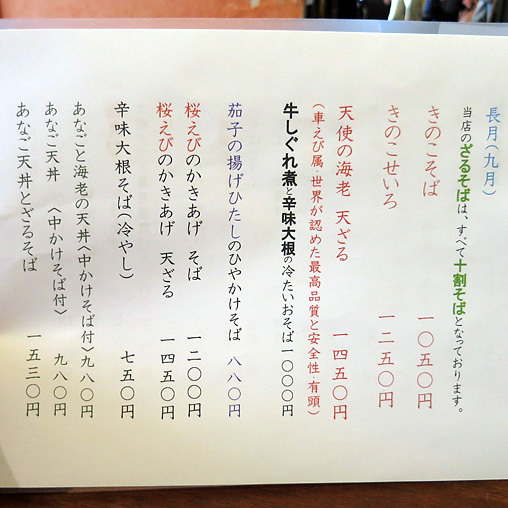 長月（九月）
当店のざるそばは、すべて十割そばとなっております。
きのこそば 一〇五〇円
きのこせいろ 一二五〇円
天使の海老 天ざる 一四五〇円
（車えび属・世界が認めた最高品質と安全性・有頭）
牛しぐれ煮と辛味大根の冷たいおそば 一〇〇〇円
茄子の揚げひたしのひやかけそば 八八〇円
桜えびのかきあげ そば 一二〇〇円
桜えびのかきあげ 天ざる 一四五〇円
辛味大根そば（冷やし） 七五〇円
あなごと海老の天丼〈中かけそば付〉九八〇円
あなご天丼 〈中かけそば付〉 九八〇円
あなご天丼とざるそば 一五三〇円